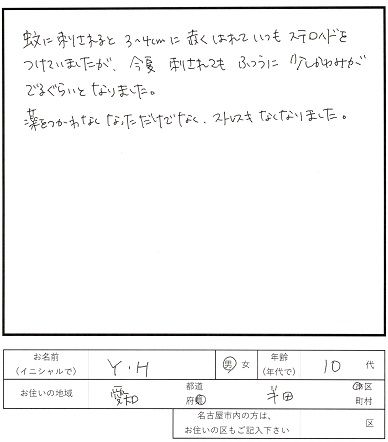 蚊に刺されると 3~4cmに赤くはれていつも ステロイドを
つけていましたが、今夏 刺されても ふつうに 少しかゆみが
でるぐらいと なりました。
薬をつかわなく なっただけでなく、ストレスも なくなりました。
お名前
(イニシャルで)
Y・H
男 女
年齢
(年代で)
10 代
お住いの地域
愛知
都道
府県
半田
市区
町村
名古屋市内の方は、
お住いの区もご記入下さい
区